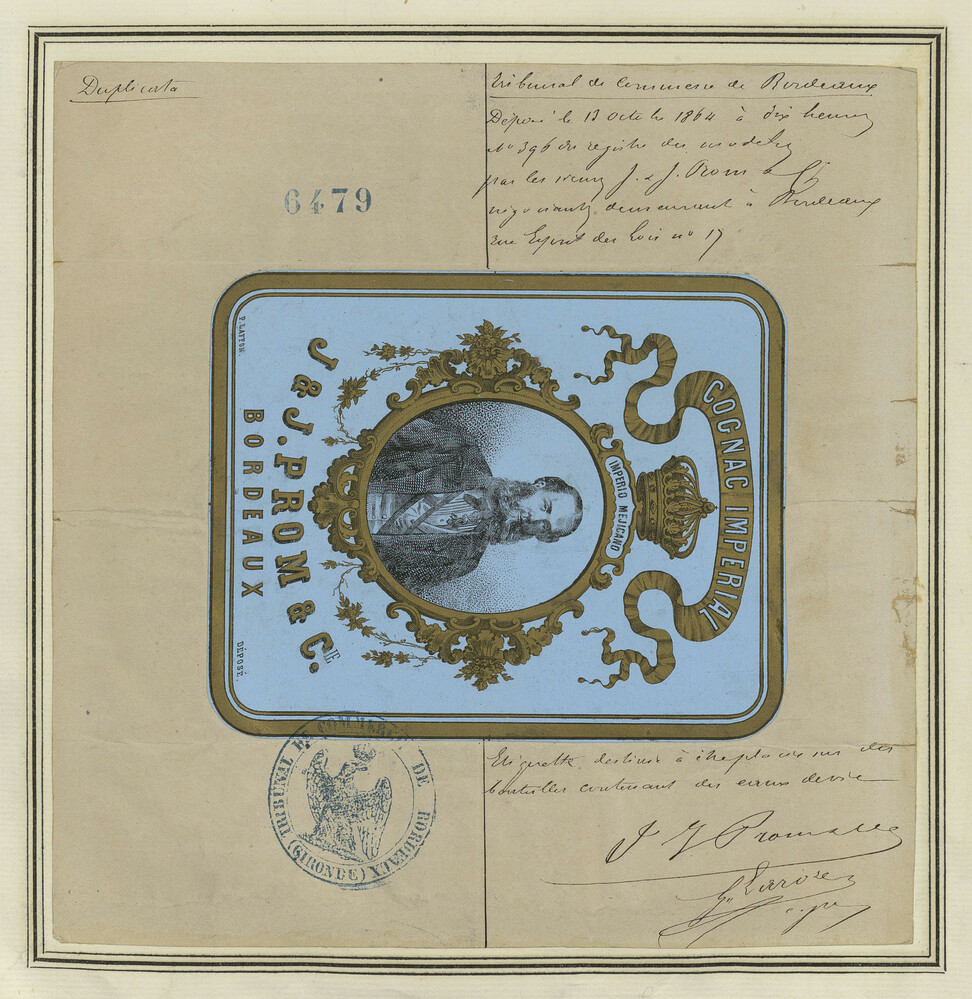 Duplicata
Tribunal de Commerce de Bordeaux
Déposé le 13 octobre 1864 à dix heures
No 396 du registre des modèles
par les sieurs J. & J. Prom & Cie
négociants, demeurant à Bordeaux
rue Esprit des Lois no 17
6479
COGNAC IMPERIAL
IMPERIO MEJICANO
J & J. PROM & CIE.
BORDEAUX
P. LATTON.
DÉPOSÉ.
TRIBUNAL DE COMMERCE DE BORDEAUX
(GIRONDE)
Etiquette destinée à être placée sur des
bouteilles contenant des eaux de vie
J J Prom & Cie